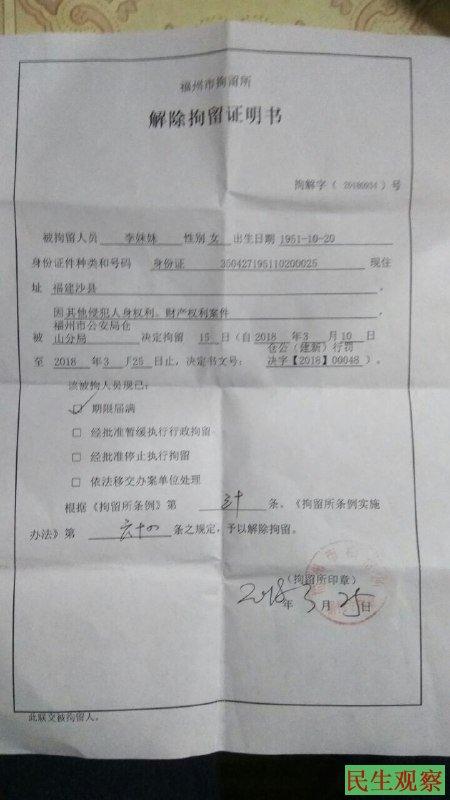 福州市拘留所
解除拘留证明书
拘解字（ 20180934 ）号
被拘留人员 李妹妹 性别 女 出生日期 1951-10-20
身份证件种类和号码 身份证 350427195110200025 现住
址 福建沙县
因其他侵犯人身权利、财产权利案件
福州市公安局仓
被 山分局 决定拘留 15 日（自 2018 年 3 月 10 日
仓公（建新）行罚
至 2018 年 3 月 25 日止，决定书文号： 决字【2018】00048 ）。
该被拘人员现已：
☑ 期限届满
□ 经批准暂缓执行行政拘留
□ 经批准停止执行拘留
□ 依法移交办案单位处理
根据《拘留所条例》第 三十 条、《拘留所条例实施
办法》第 六十四 条之规定，予以解除拘留。
（拘留所印章）
2018 年 3 月 25 日
此联交被拘留人。
民生观察